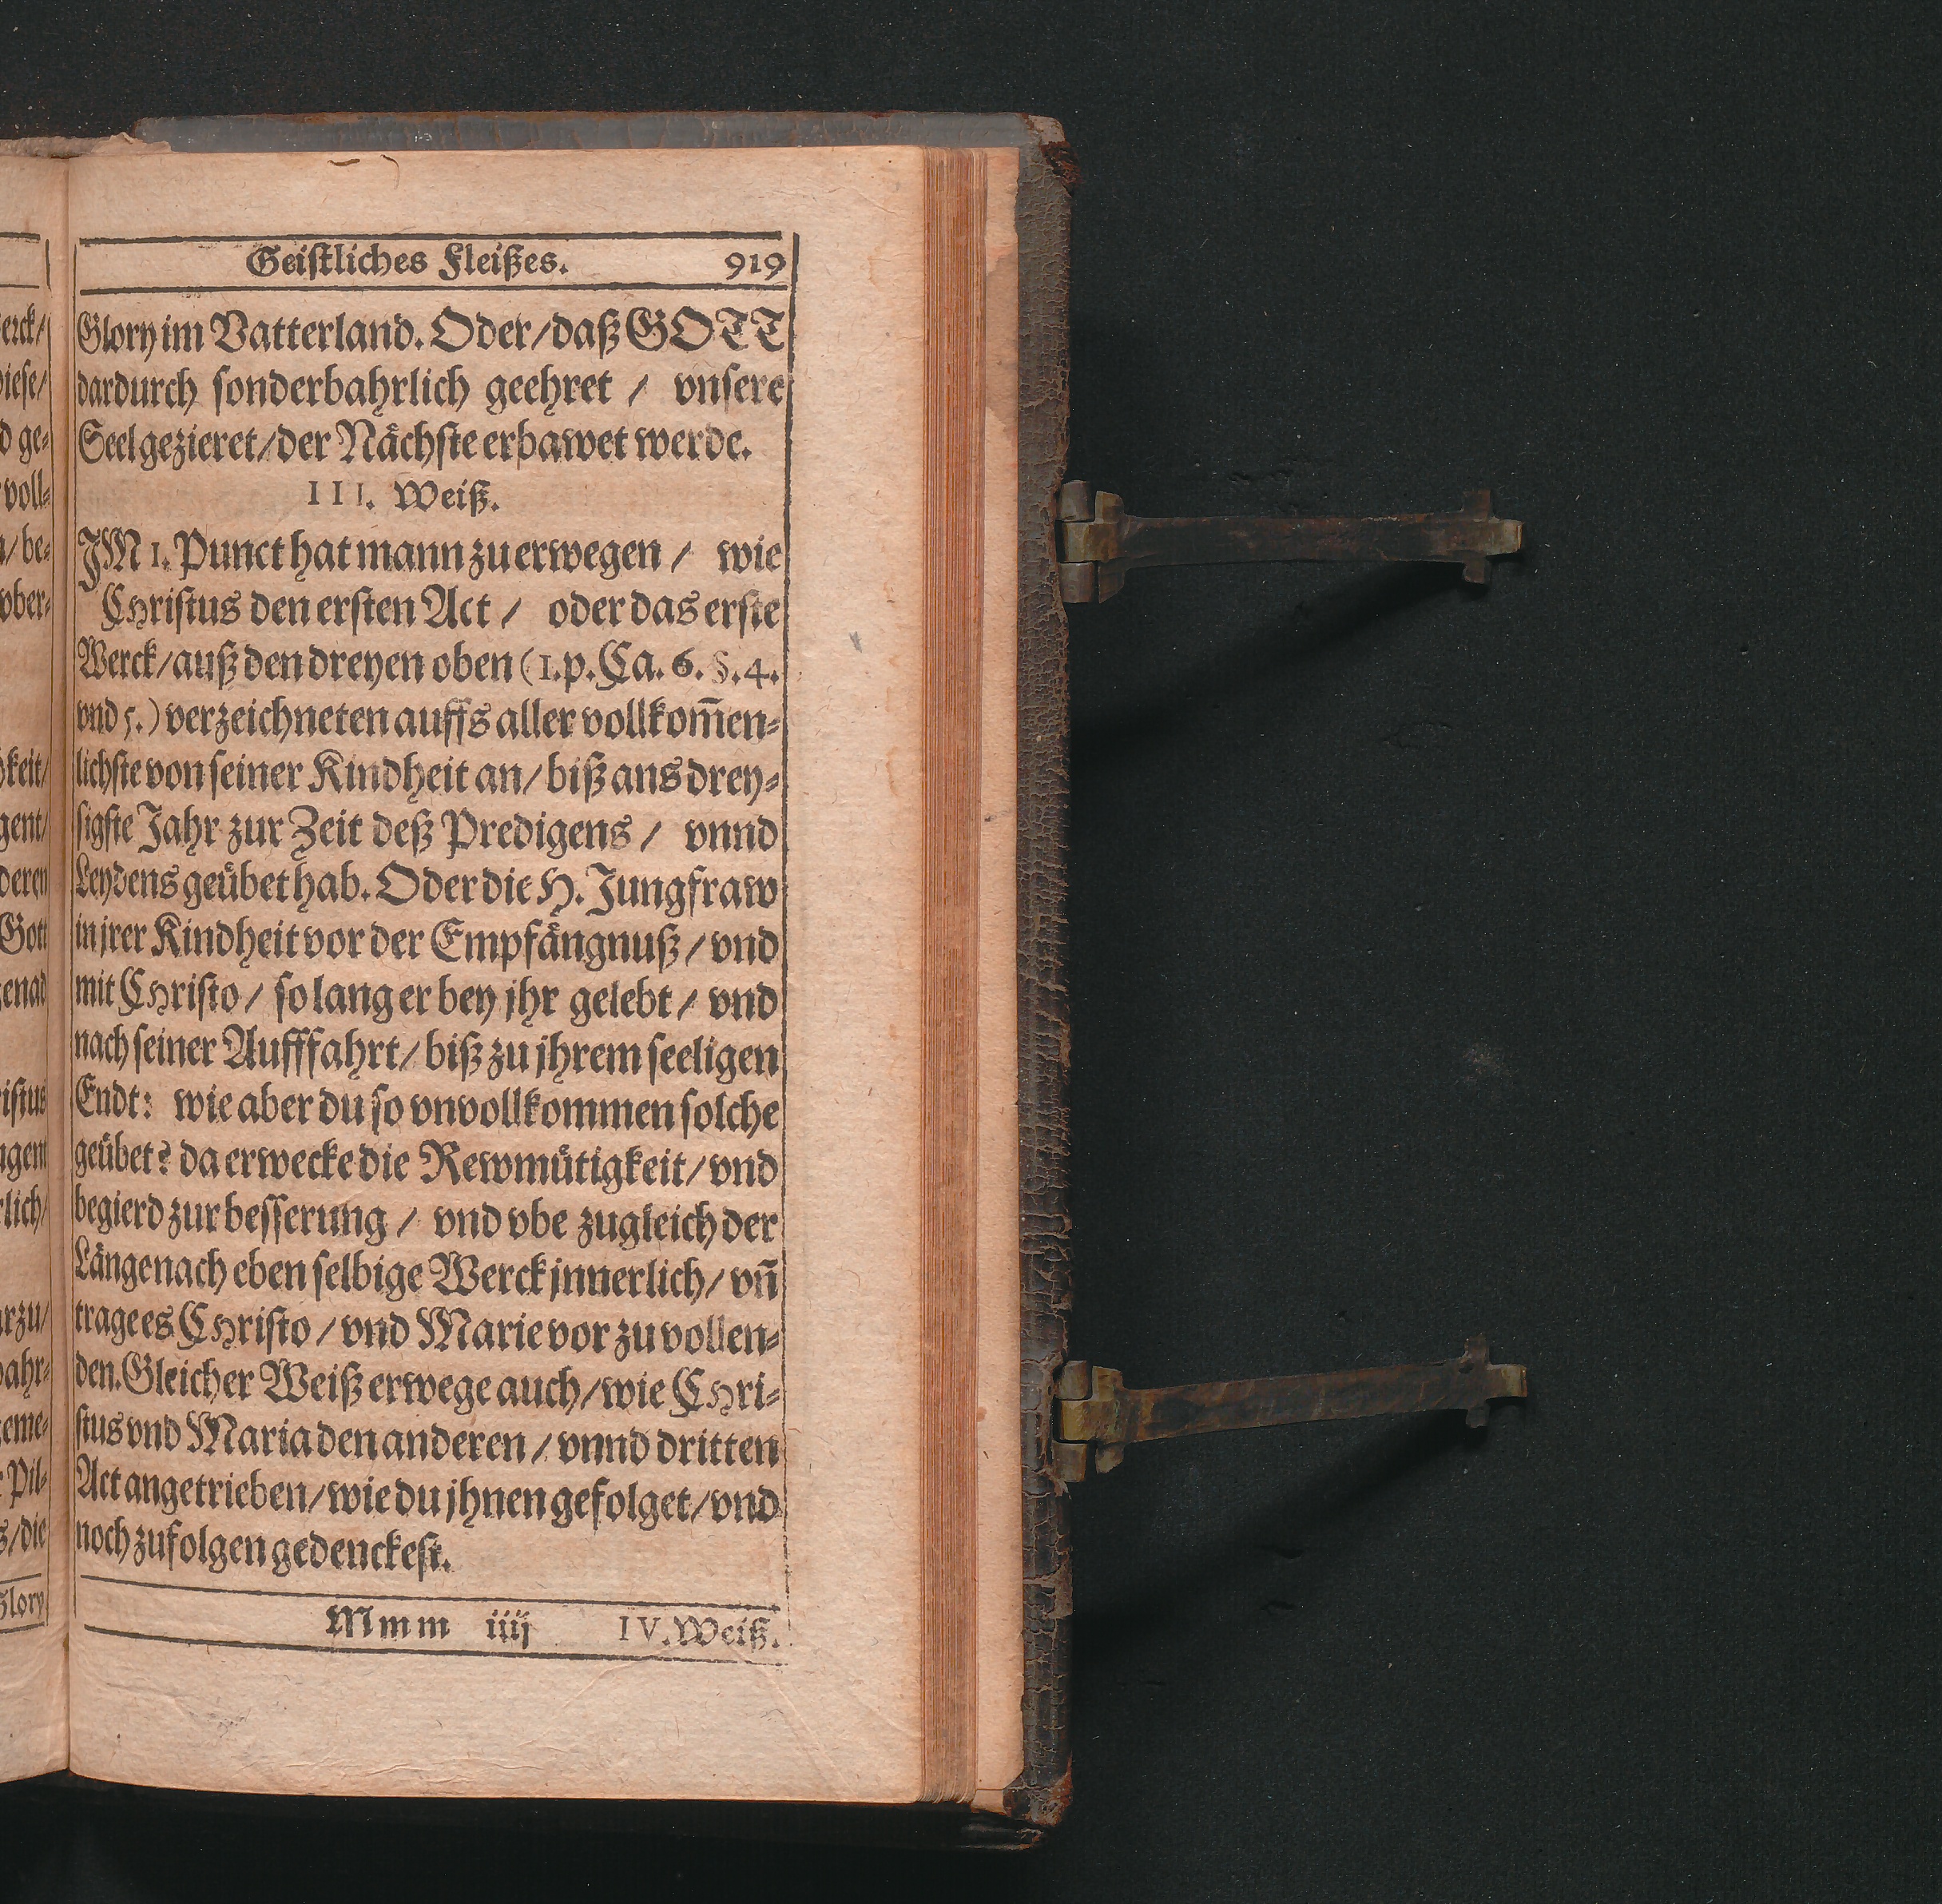 Geistliches Fleißes. 919
Glory im Vatterland. Oder/daß GOTT
dardurch sonderbahrlich geehret / vnsere
Seel gezieret/der Nächste erbawet werde.
III. Weiß.
JM 1. Punct hat mann zu erwegen / wie
CHristus den ersten Act / oder das erste
Werck/auß den dreyen oben (1.p.Ca. 6. §.4.
vnd 5.) verzeichneten auffs aller vollkom̃en-
lichste von seiner Kindheit an/biß ans drey-
sigste Jahr zur Zeit deß Predigens / vnnd
Leydens geübet hab. Oder die H. Jungfraw
in jrer Kindheit vor der Empfängnuß/vnd
mit CHristo / so lang er bey jhr gelebt / vnd
nach seiner Aufffahrt/biß zu jhrem seeligen
Endt: wie aber du so vnvollkommen solche
geübet? da erwecke die Rewmütigkeit/vnd
begierd zur besserung / vnd vbe zugleich der
Länge nach eben selbige Werck jnnerlich/vñ
trage es CHristo / vnd Marie vor zu vollen-
den. Gleicher Weiß erwege auch/wie CHri-
stus vnd Maria den anderen / vnnd dritten
Act angetrieben/wie du jhnen gefolget/vnd
noch zufolgen gedenckest.
Mmm iiij IV. Weiß.